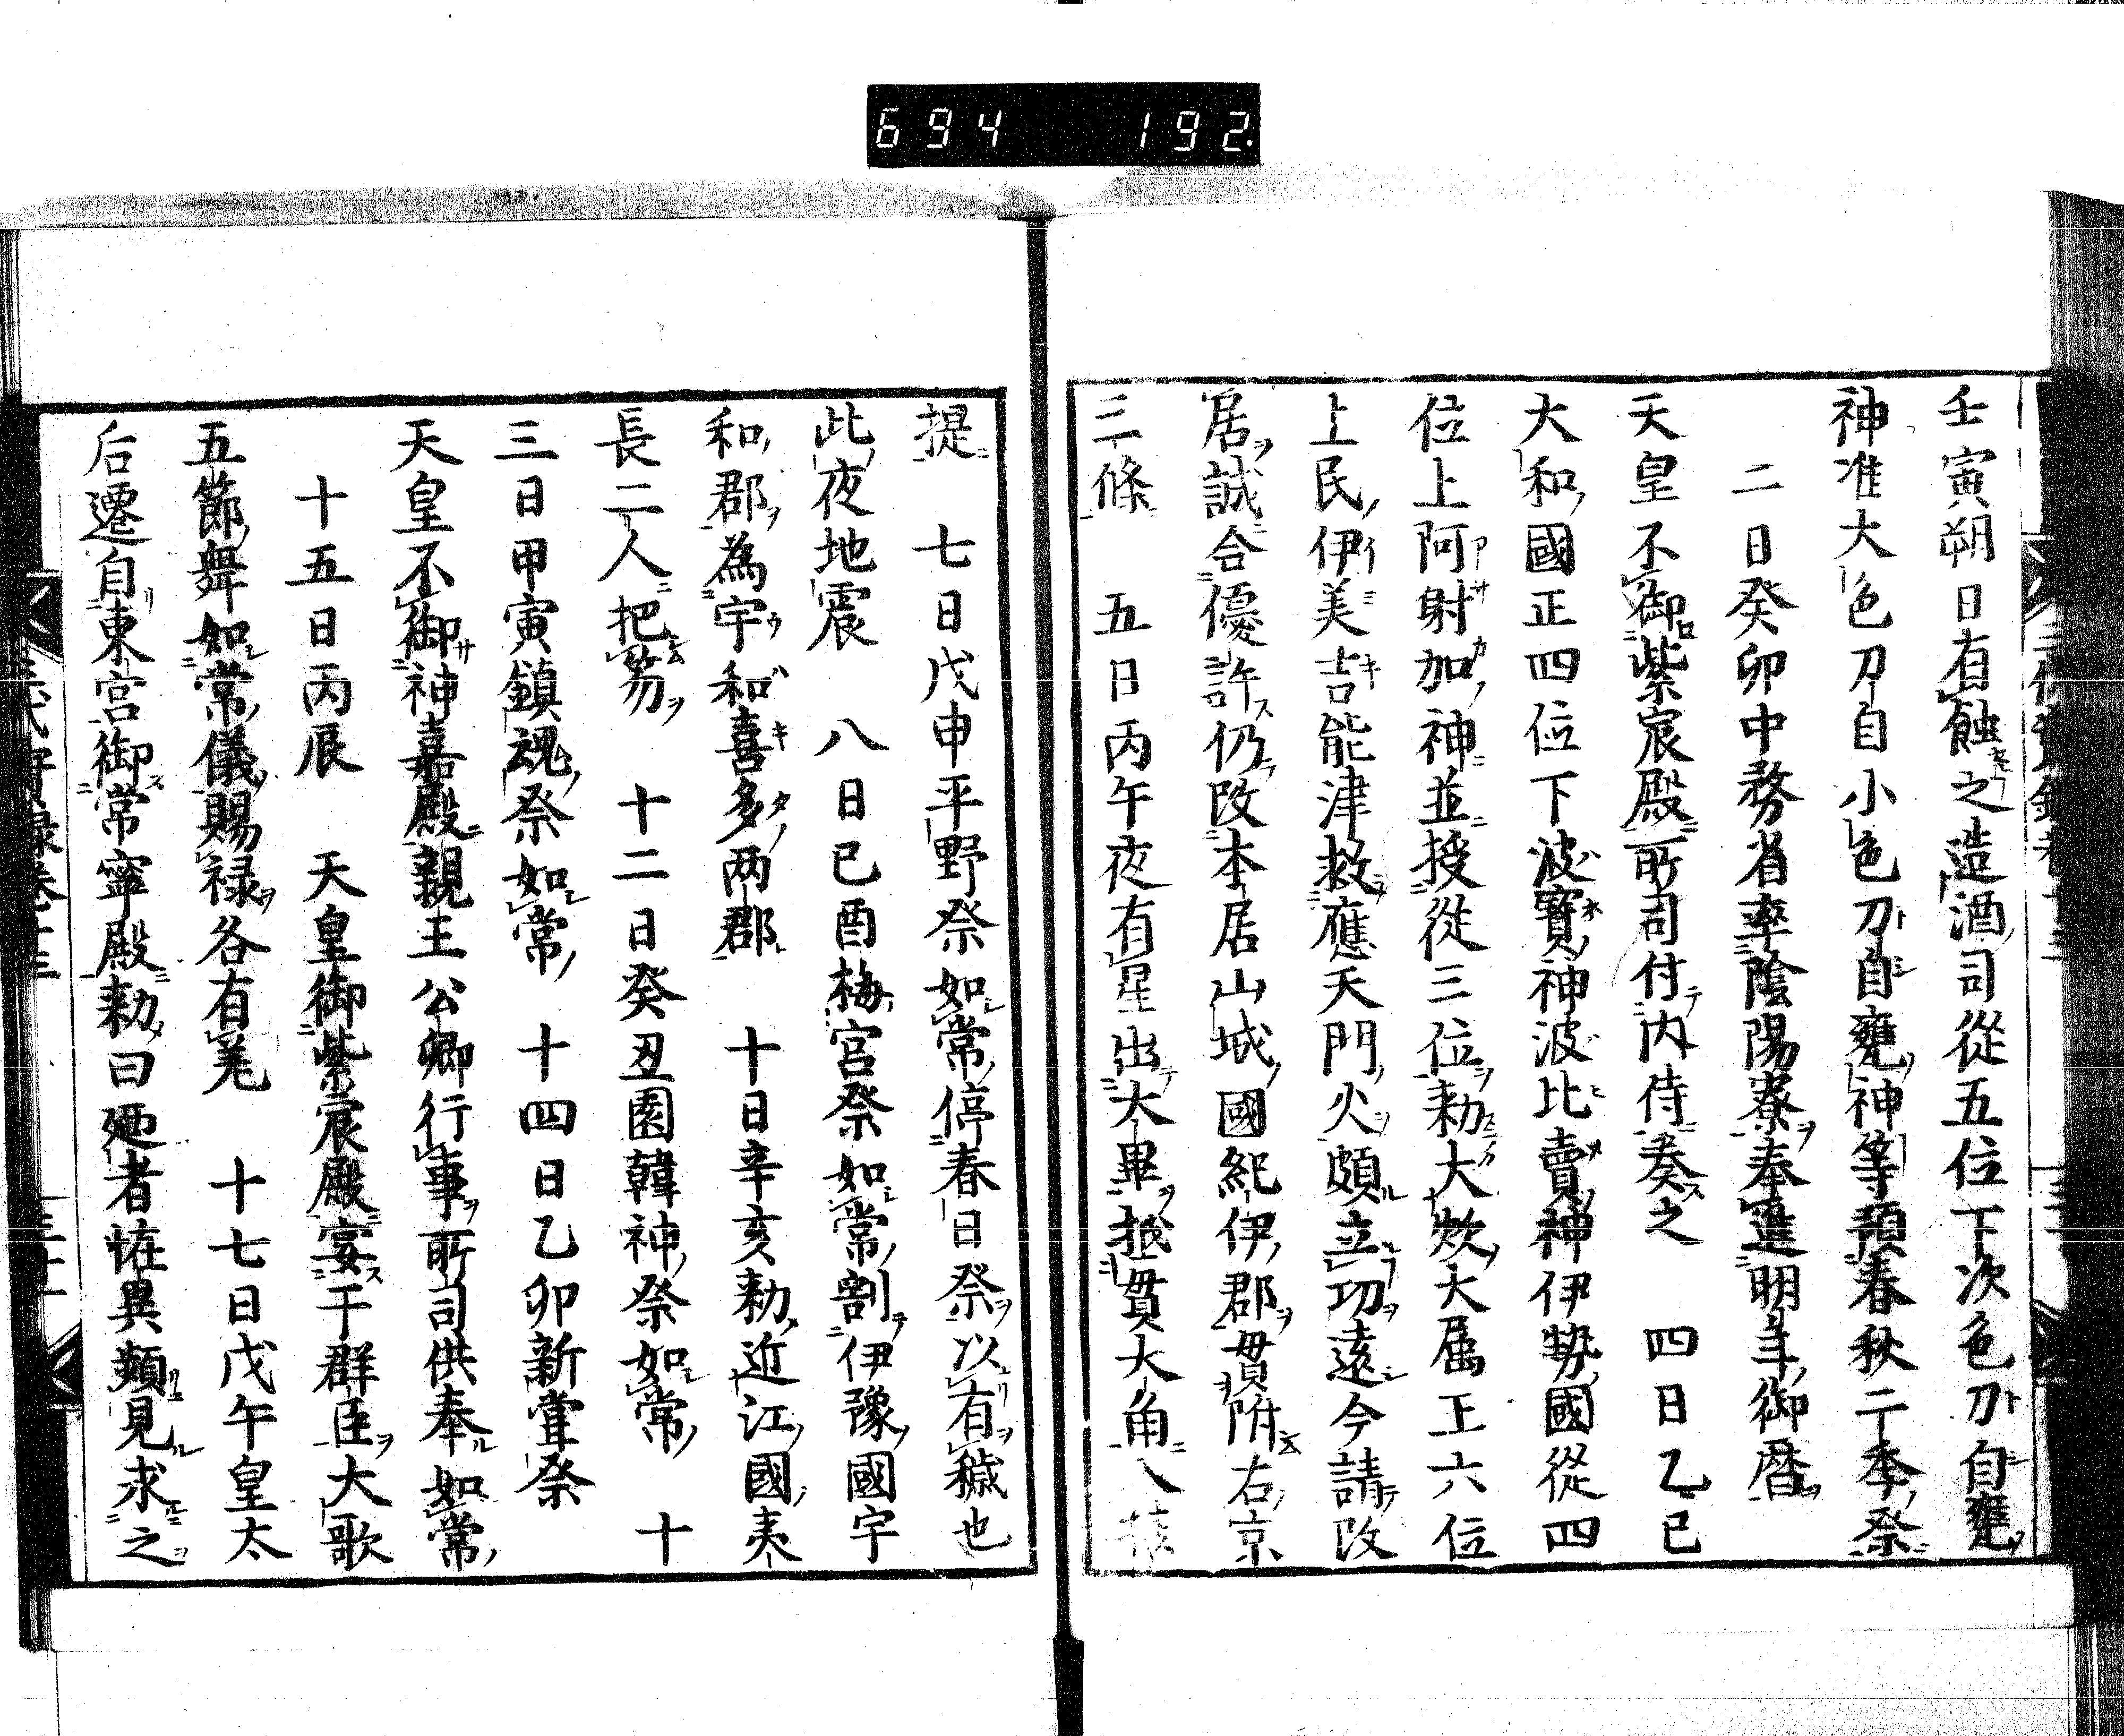 694 192.
壬寅朔日有蝕之造酒司從五位下次邑刀自甕
神准大邑刀自小邑刀自甕神等預春秋二季祭
二日癸卯中務省率陰陽寮奉進明年御暦
天皇不御紫宸殿所司付内侍奏之 四日乙巳
大和國正四位下波寳神波比賣神伊勢國從四
位上阿射加神並授從三位勅大炊大属正六位
上民伊美吉能津救應天門火頗立功遠今請改
居誠合優許仍改本居山城國紀伊郡貫附右京
三條 五日丙午夜有星出太畢抵貫大角入
提 七日戊申平野祭如常停春日祭以有穢也
此夜地震 八日己酉梅宮祭如常割伊豫國宇
和郡為宇和喜多両郡 十日辛亥勅近江國夷
長二人把笏 十二日癸丑園韓神祭如常 十
三日甲寅鎮魂祭如常 十四日乙卯新甞祭
天皇不御神嘉殿親王公卿行事所司供奉如常
十五日丙辰 天皇御紫宸殿宴于群臣大歌
五節舞如常儀賜禄各有差 十七日戊午皇太
后遷自東宮御常寧殿勅曰廼者恠異頻見求之